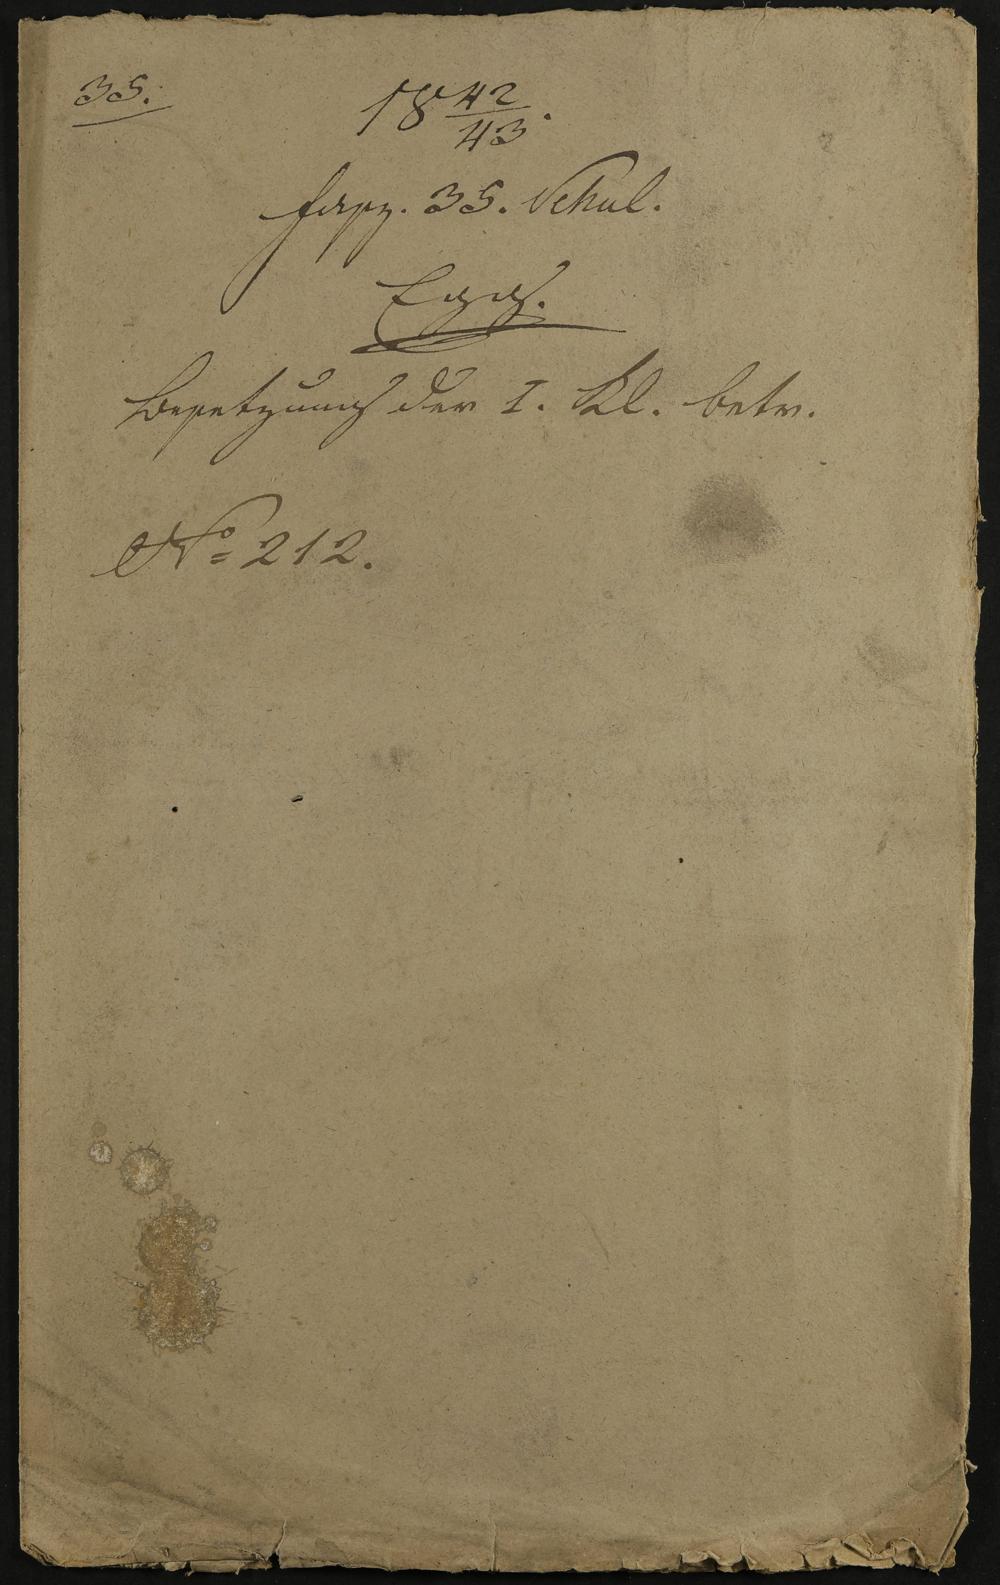 35.
18 42/43.
Fasz. 35. Schul.
Egg.
Besetzung der I. Kl. betr.
No 212.